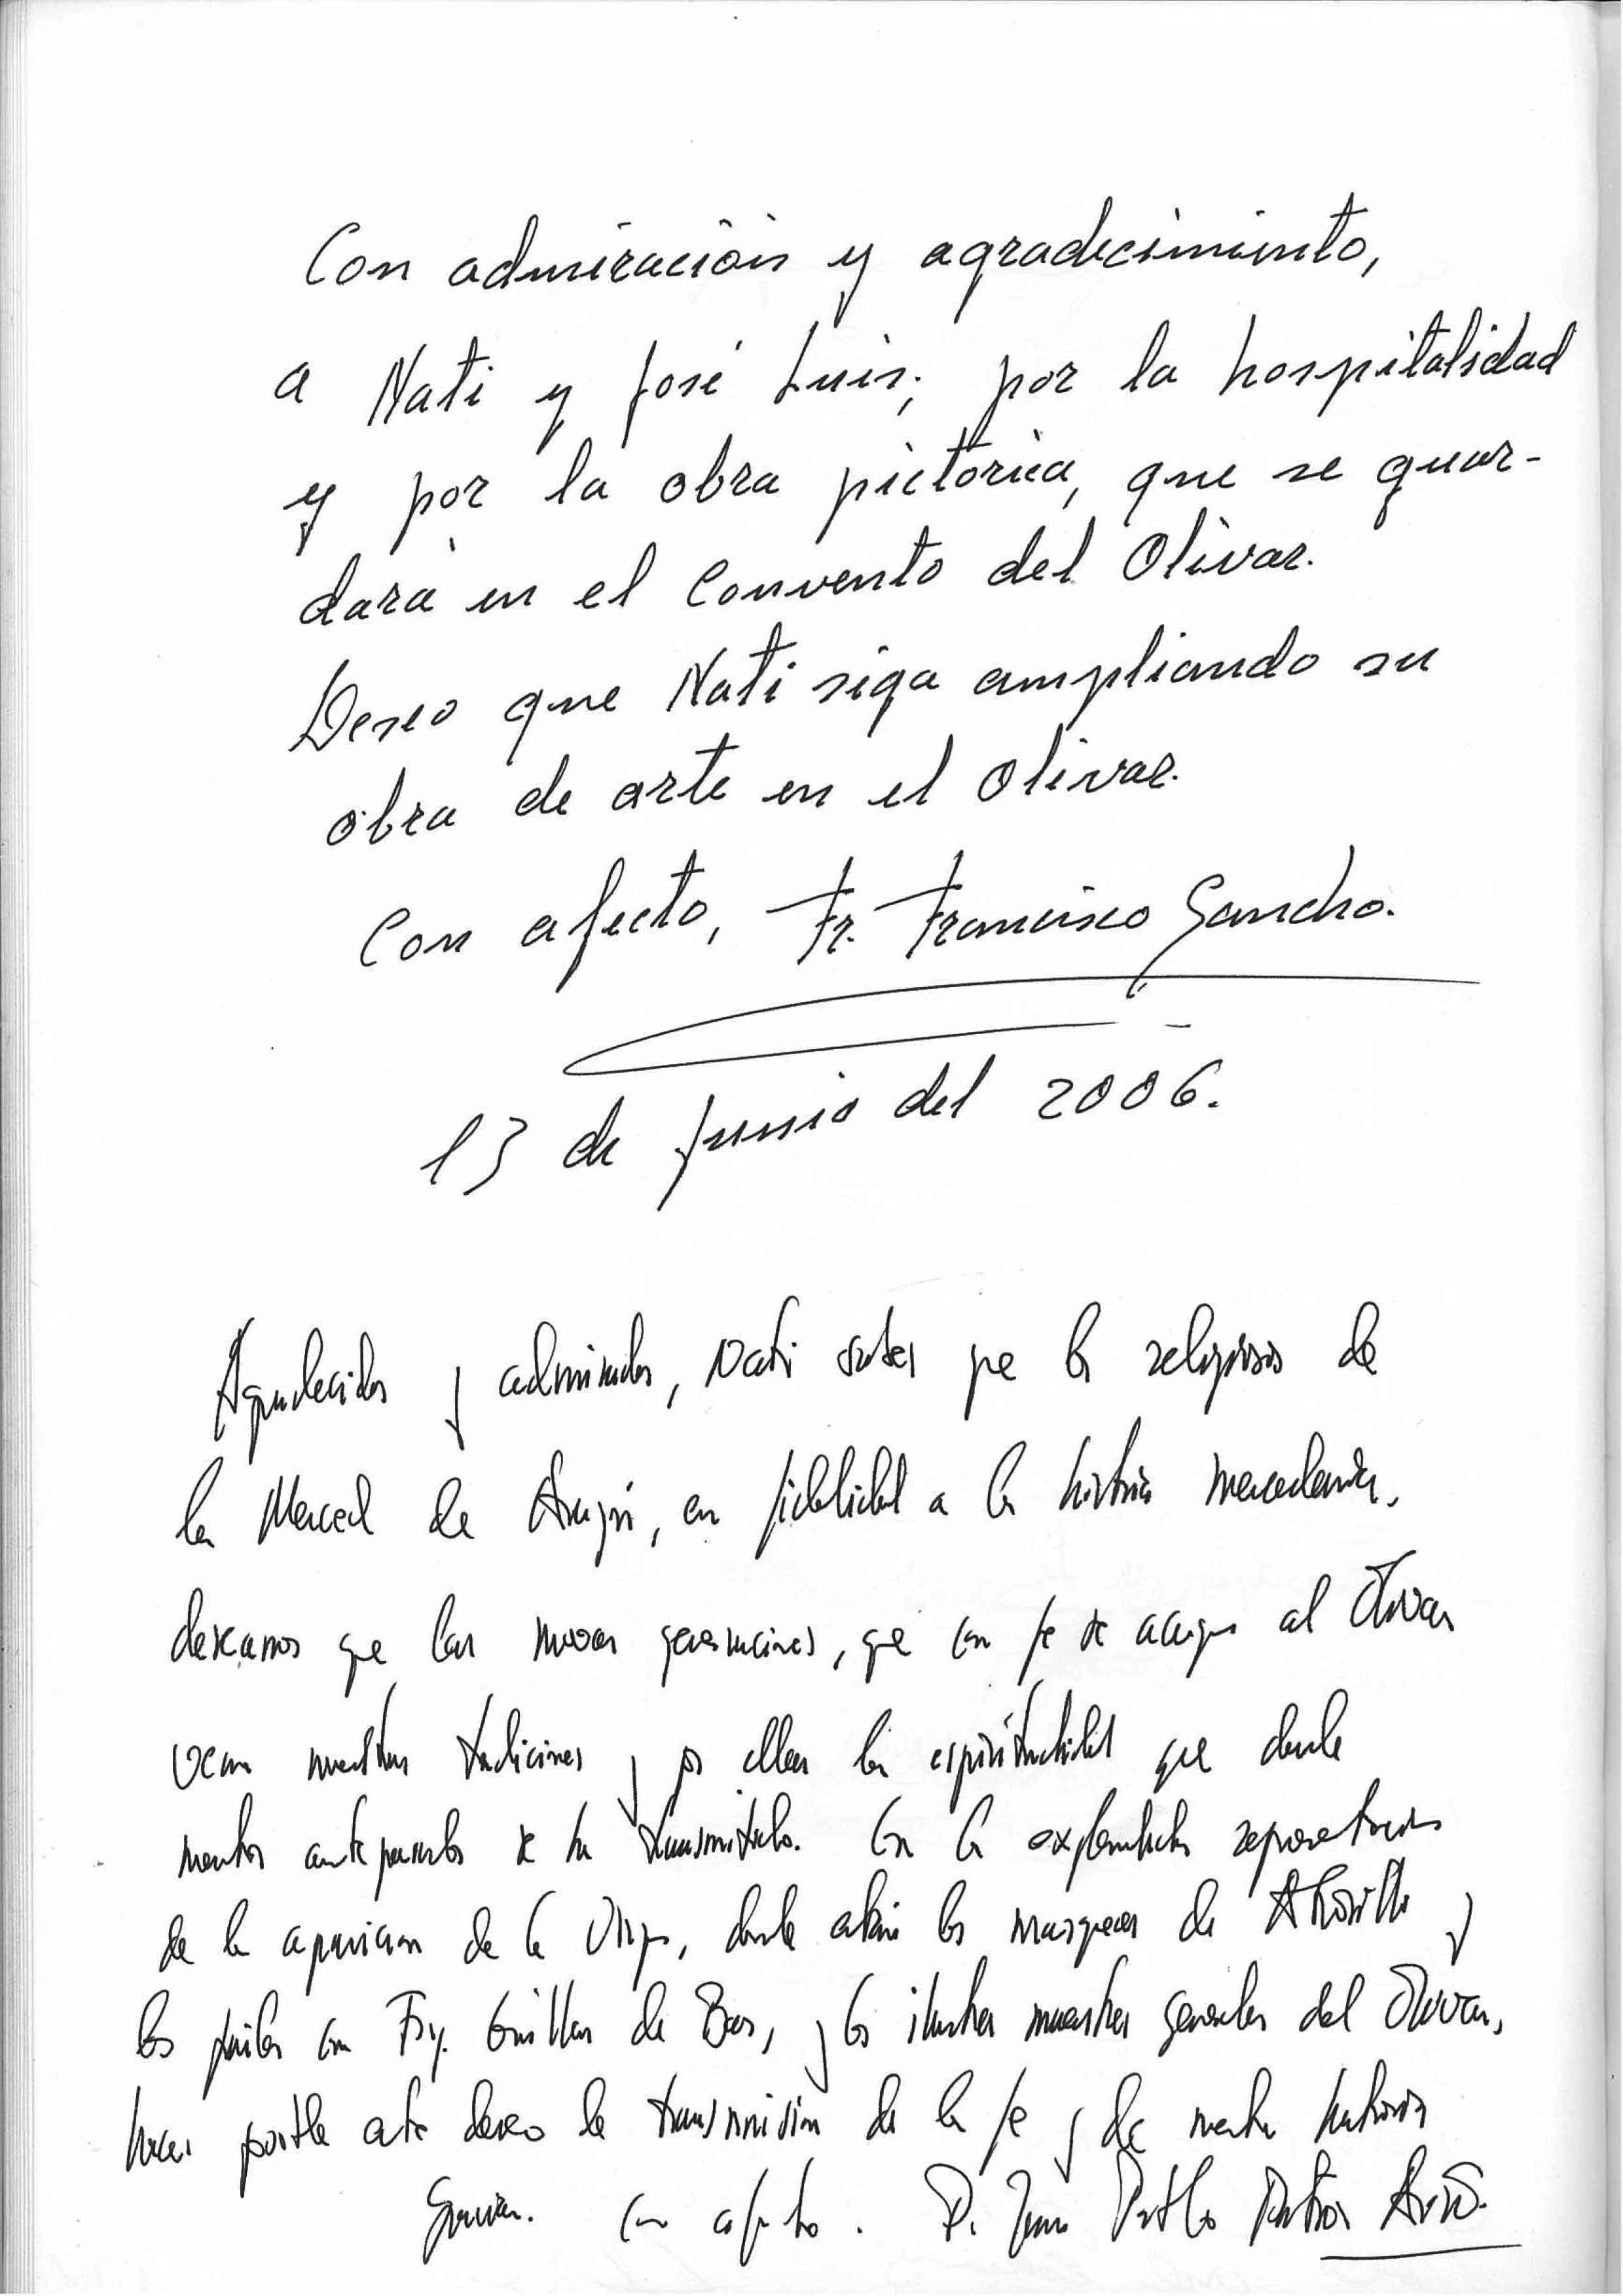 Con admiración y agradecimiento,
a Nati y José Luis; por la hospitalidad
y por la obra pictórica, que se guar-
dará en el Convento del Olivar.
Deseo que Nati siga ampliando su
obra de arte en el Olivar.
Con afecto, Fr. Francisco Sancho.
13 de Junio del 2006.
Agradecidos y admirados, Nati sabes que los religiosos de
la Merced de Aragón, en fidelidad a la historia mercedaria,
deseamos que las nuevas generaciones, que con fe se acerquen al Olivar
vean nuestras tradiciones y por ellas la espiritualidad que desde
nuestros antepasados se ha transmitido. En la
de la aparición de la Virgen, donde están los marqueses de y
los frailes con Fray. Guillem de Bas, y los ilustres maestros generales del Olivar,
hacen posible este deseo de transmisión de la fe y de nuestra historia
Gracias. Con afecto. P. Juan Pablo